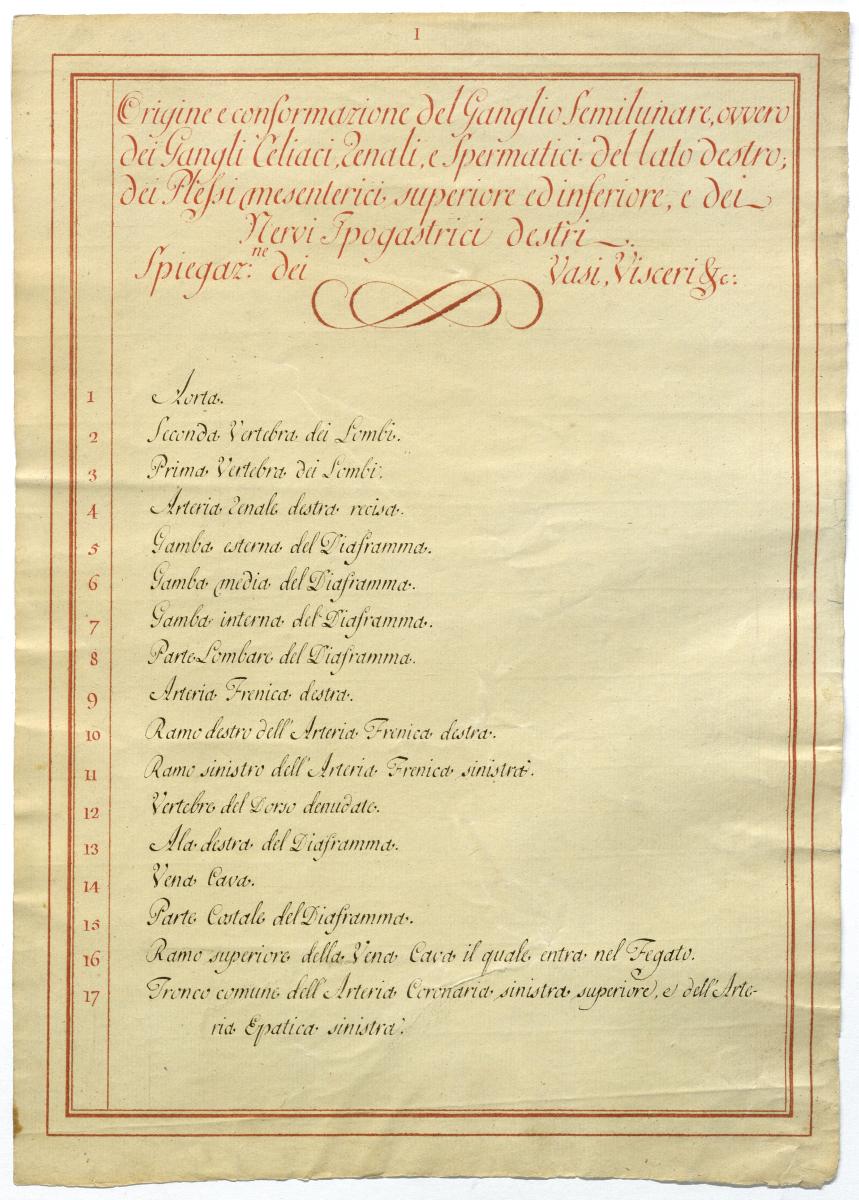 I
Origine e conformazione del Ganglio Semilunare, ovvero
dei Gangli Celiaci, Renali, e Spermatici del lato destro;
dei Plessi mesenterici superiore ed inferiore, e dei
Nervi Ipogastrici destri.
Spiegaz:ne dei Vasi, Visceri &c:
1 Aorta.
2 Seconda Vertebra dei Lombi.
3 Prima Vertebra dei Lombi.
4 Arteria Renale destra recisa.
5 Gamba esterna del Diaframma.
6 Gamba media del Diaframma.
7 Gamba interna del Diaframma.
8 Parte Lombare del Diaframma.
9 Arteria Frenica destra.
10 Ramo destro dell'Arteria Frenica destra.
11 Ramo sinistro dell'Arteria Frenica sinistra.
12 Vertebre del Dorso denudate.
13 Ala destra del Diaframma.
14 Vena Cava.
15 Parte Costale del Diaframma.
16 Ramo superiore della Vena Cava il quale entra nel Fegato.
17 Tronco comune dell'Arteria Coronaria sinistra superiore, e dell'Arte-
ria Epatica sinistra.